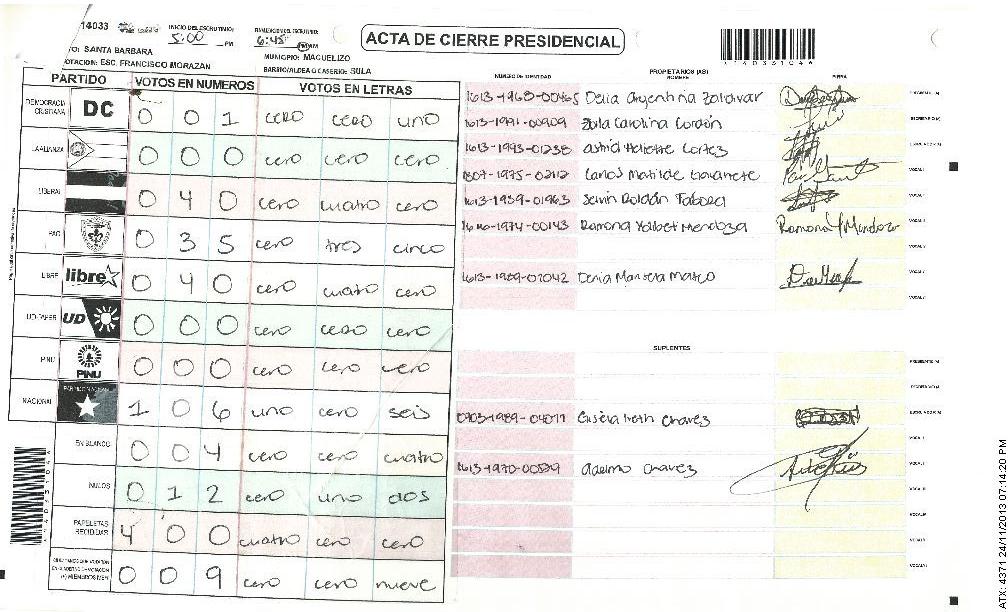 14033 INICIO DEL ESCRUTINIO: 5:00 PM 6:45 PM
ACTA DE CIERRE PRESIDENCIAL
SANTA BARBARA MUNICIPIO: MACUELIZO
ESC. FRANCISCO MORAZAN BARRIO/ALDEA O CASERIO: SULA
PARTIDO VOTOS EN NUMEROS VOTOS EN LETRAS
DEMOCRACIA CRISTIANA DC 0 0 1 cero cero uno
LA ALIANZA 0 0 0 cero cero cero
LIBERAL 0 4 0 cero cuatro cero
PAC 0 3 5 cero tres cinco
LIBRE libre 0 4 0 cero cuatro cero
UD-FAPER UD 0 0 0 cero cero cero
PINU PINU 0 0 0 cero cero cero
NACIONAL PARTIDO NACIONAL 1 0 6 uno cero seis
EN BLANCO 0 0 4 cero cero cuatro
NULOS 0 1 2 cero uno dos
PAPELETAS RECIBIDAS 4 0 0 cuatro cero cero
(+) MIEMBROS MER 0 0 9 cero cero nueve
PROPIETARIOS (AS)
NUMERO DE IDENTIDAD NOMBRE FIRMA
1613-1968-00465 Delia Argentina Zaldivar PRESIDENTE (A)
1613-1991-00909 Zoila Carolina SECRETARIO (A)
1613-1993-01238 Astrid Cortez ESCRUTADOR (A)
1807-1975-02112 Carlos Matilde VOCAL I
1613-1959-01963 Roldán Tabora VOCAL II
Ramona Mendoza Ramona Y Mendoza
1613-1989-02042 Denia Marisela VOCAL V
SUPLENTES
PRESIDENTE (A)
SECRETARIO (A)
0903-1989-04077 Gisela Chavez ESCRUTADOR (A)
VOCAL I
1613-1970-00529 Adelmo Chavez VOCAL II
VOCAL III
VOCAL IV
VOCAL V
VOCAL VI
ATX: 4371 24/11/2013 07:14:20 PM